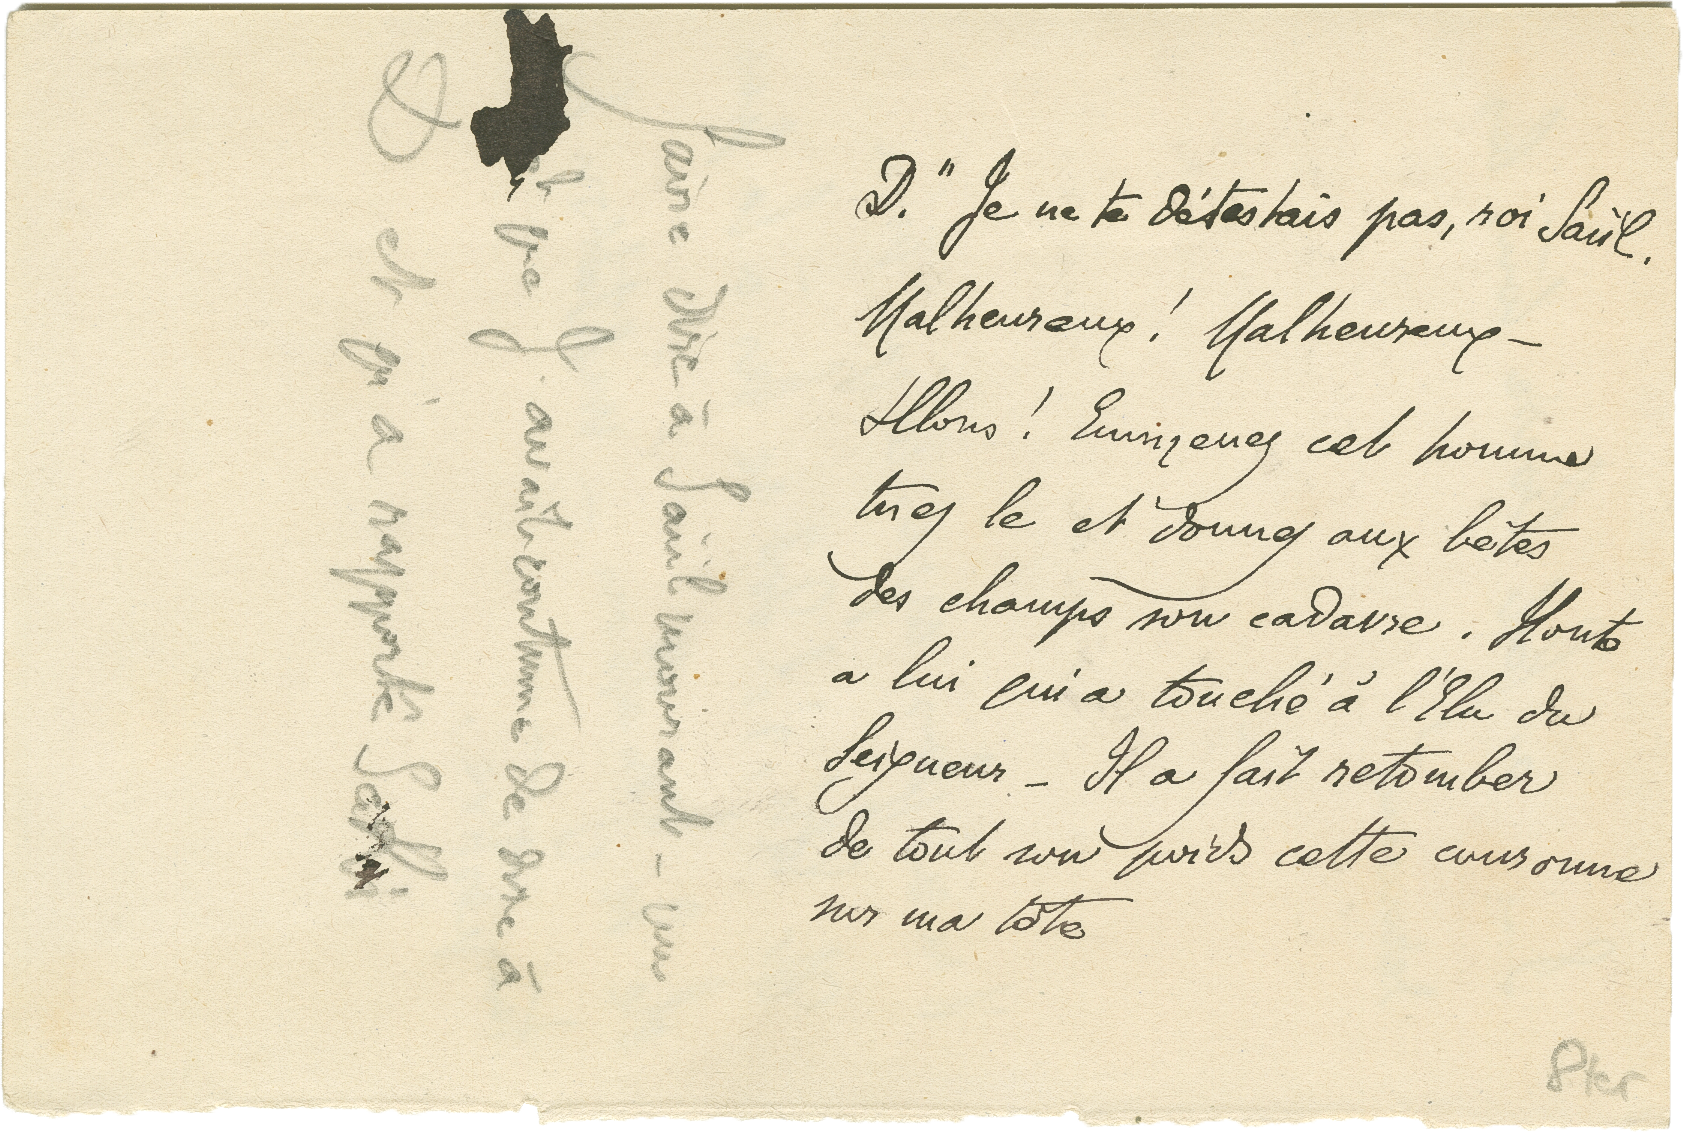 D. " Je ne te détestais pas, roi Saül.
Malheureux ! Malheureux –
Allons ! Emmenez cet homme
tuez le et donnez aux bêtes
des champs son cadavre. Honte
a lui qui a touché à l'Élu du
Seigneur – Il a fait retomber
de tout son poids cette couronne
sur ma tête
Faire dire à Saül mourant – un
que J. avait coutume de dire à
D et qu'a rapporté
8ter